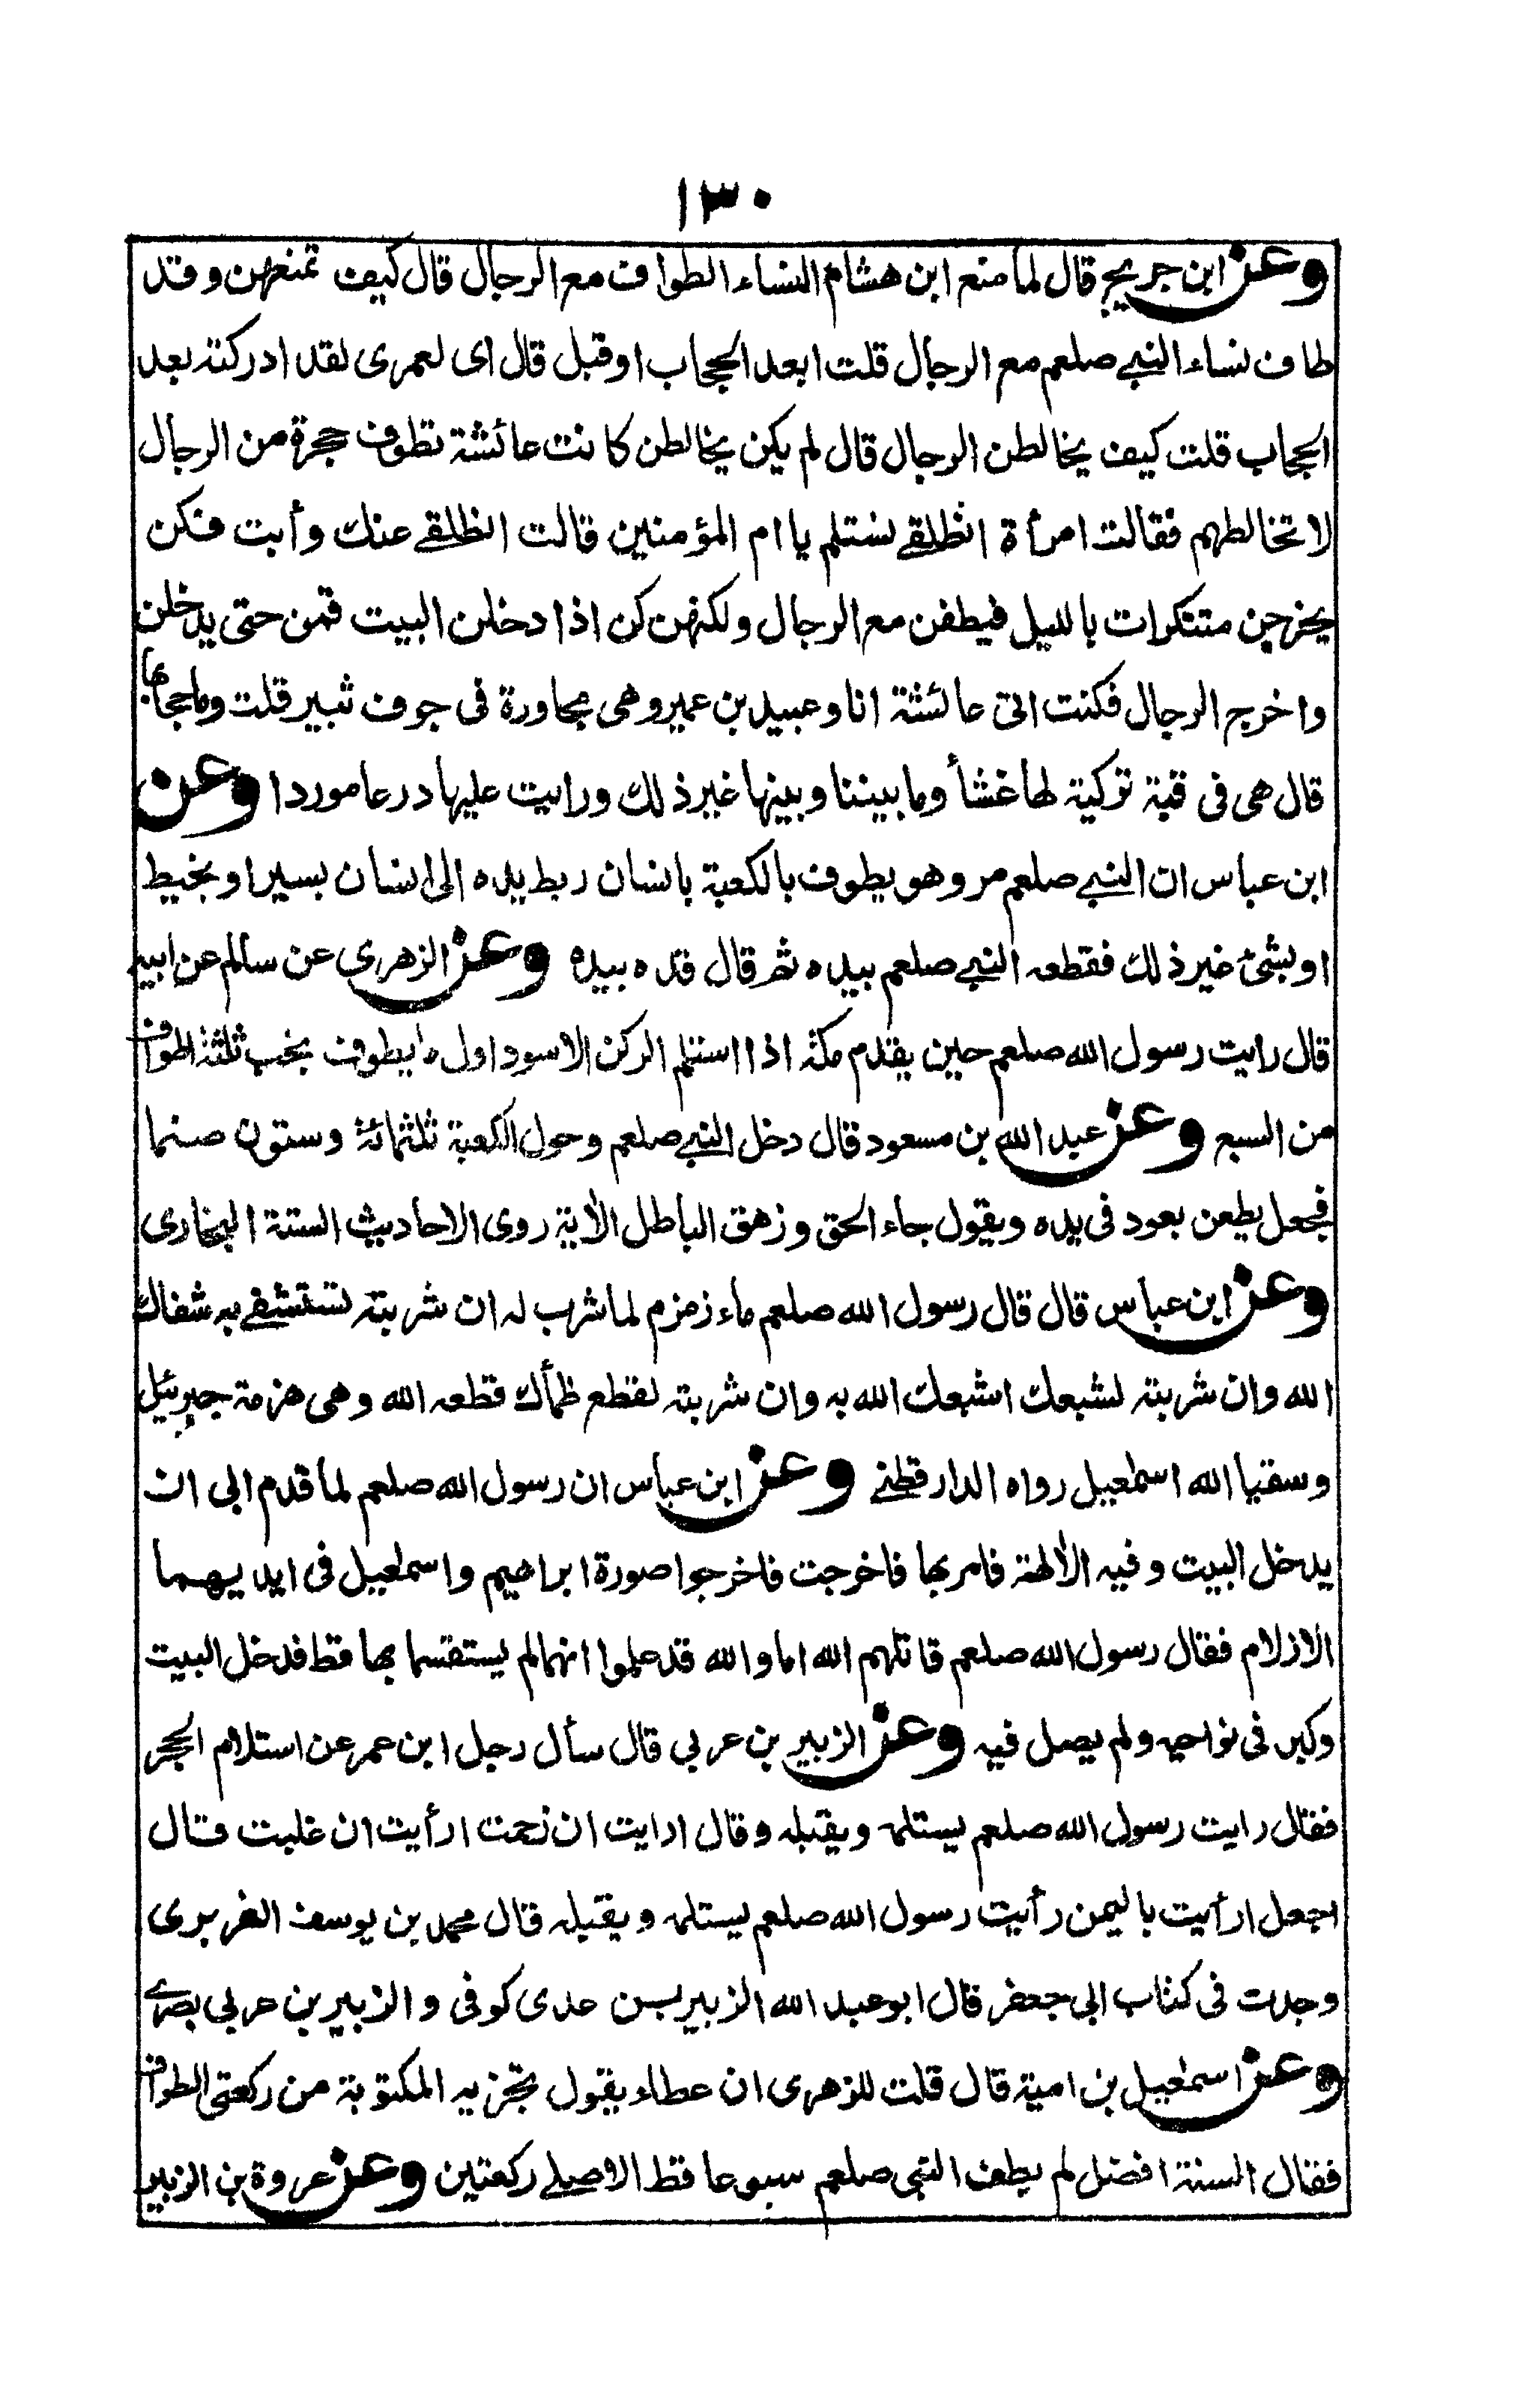 ١٣٠
وعن ابن جريج قال لما منع ابن هشام النساء الطواف مع الرجال قال كيف تمنعهن وقد
طاف نساء النبي صلعم مع الرجال قلت ابعد الحجاب او قبل قال اى لعمرى لقد ادركته بعد
الحجاب قلت كيف يخالطن الرجال قال لم يكن يخالطن كانت عائشة تطوف حجرة من الرجال
لا تخالطهم فقالت امرأة انطلقي نستلم يا ام المؤمنين قالت انطلقي عنك وأبت فكن
يخرجن متنكرات بالليل فيطفن مع الرجال ولكنهن كن اذا دخلن البيت قمن حتى يدخلن
واخرج الرجال فكنت اتى عائشة انا وعبيد بن عمير وهى مجاورة فى جوف ثبير قلت وما حجابها
قال هى فى قبة تركية لها غشأ وما بيننا وبينها غير ذلك ورايت عليها درعا موردا وعن
ابن عباس ان النبي صلعم مر وهو يطوف بالكعبة بانسان ربط يده الى انسان بسير او بخيط
او بشئ غير ذلك فقطعه النبي صلعم بيده ثم قال قده بيده وعن الزهرى عن سالم عن ابيه
قال رايت رسول الله صلعم حين يقدم مكة اذا استلم الركن الاسود اول ما يطوف يخب ثلثة اطواف
من السبع وعن عبد الله بن مسعود قال دخل النبي صلعم وحول الكعبة ثلثمائة وستون صنما
فجعل يطعن بعود فى يده ويقول جاء الحق وزهق الباطل الأية روى الاحاديث الستة البخارى
وعن ابن عباس قال قال رسول الله صلعم ماء زمزم لما شرب له ان شربته تستشفي به شفاك
الله وان شربته لشبعك اشبعك الله به وان شربته لقطع ظمأك قطعه الله وهى هزمة جبرئيل
وسقيا الله اسمعيل رواه الدارقطني وعن ابن عباس ان رسول الله صلعم لما قدم ابى ان
يدخل البيت وفيه الألهة فامر بها فاخرجت فاخرجوا صورة ابراهيم واسمعيل فى ايديهما
الازلام فقال رسول الله صلعم قاتلهم الله اما والله قد علموا انهما لم يستقسما بها قط فدخل البيت
وكبر فى نواحيه ولم يصل فيه وعن الزبير بن عربي قال سأل رجل ابن عمر عن استلام الحجر
فقال رايت رسول الله صلعم يستلمه ويقبله وقال ارايت ان زحمت ارأيت ان غلبت قال
اجعل ارأيت باليمن رأيت رسول الله صلعم يستلمه ويقبله قال محمد بن يوسف الفربرى
وجدت فى كتاب ابى جعفر قال ابو عبد الله الزبير بن عدى كوفى والزبير بن عربي بصرى
وعن اسمعيل بن امية قال قلت للزهرى ان عطاء يقول تجزيه المكتوبة من ركعتى الطواف
فقال السنة افضل لم يطف النبى صلعم سبوعا قط الا صلے ركعتين وعن عروة بن الزبير